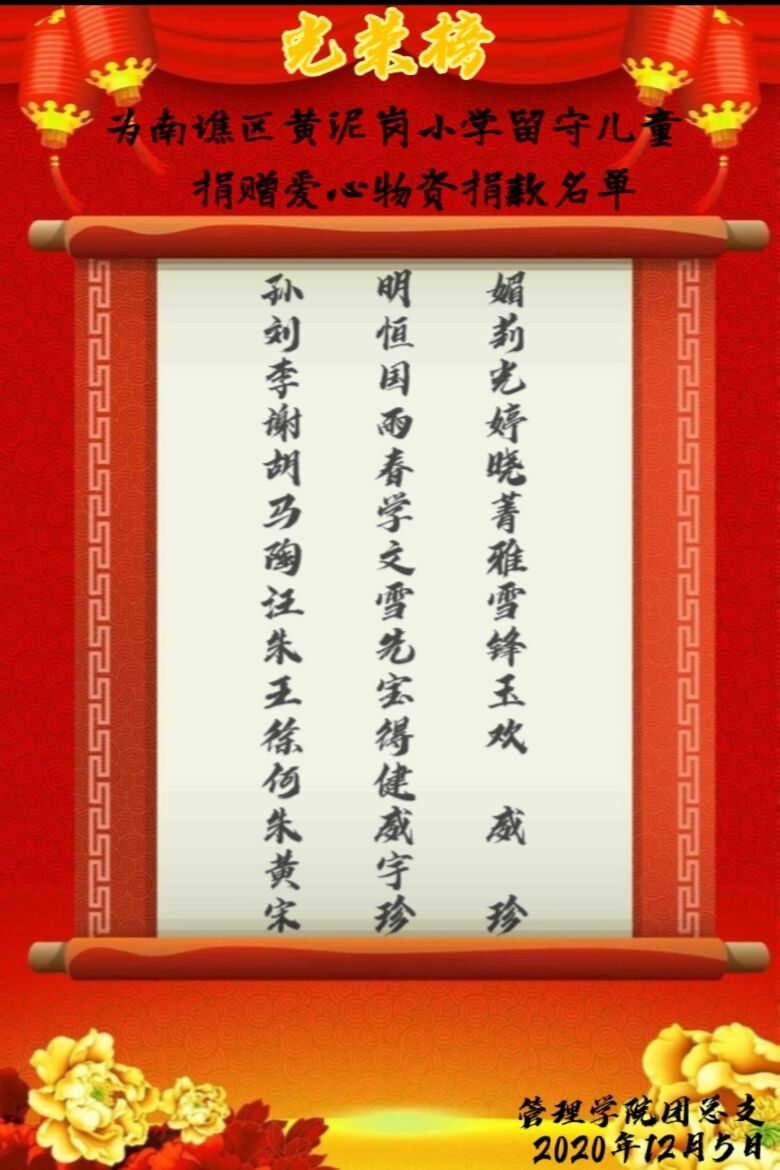 光荣榜
为南谯区黄泥岗小学留守儿童
捐赠爱心物资捐款名单
孙 明 媚
刘 恒 莉
李 国 光
谢 雨 婷
胡 春 晓
马 学 菁
陶 文 雅
汪 雪 雪
朱 先 锋
王 宝 玉
徐 得 欢
何 健
朱 威 威
黄 宇
宋 珍 珍
管理学院团总支
2020年12月5日